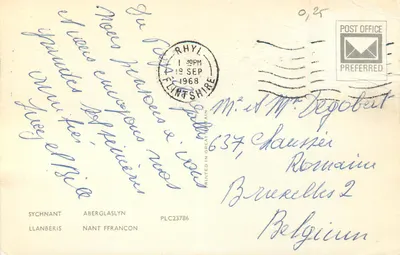 0,25
POST OFFICE
PREFERRED
RHYL
1 - PM
19 SEP
1968
FLINTSHIRE
Du Pays de Galles
Nous pensons à vous
et vous envoyons nos
grandes
amitiés
Mr et Mme Degobert
637, Chaussée
Romaine
Bruxelles 2
Belgium
SYCHNANT ABERGLASLYN
PLC23786
LLANBERIS NANT FFRANCON